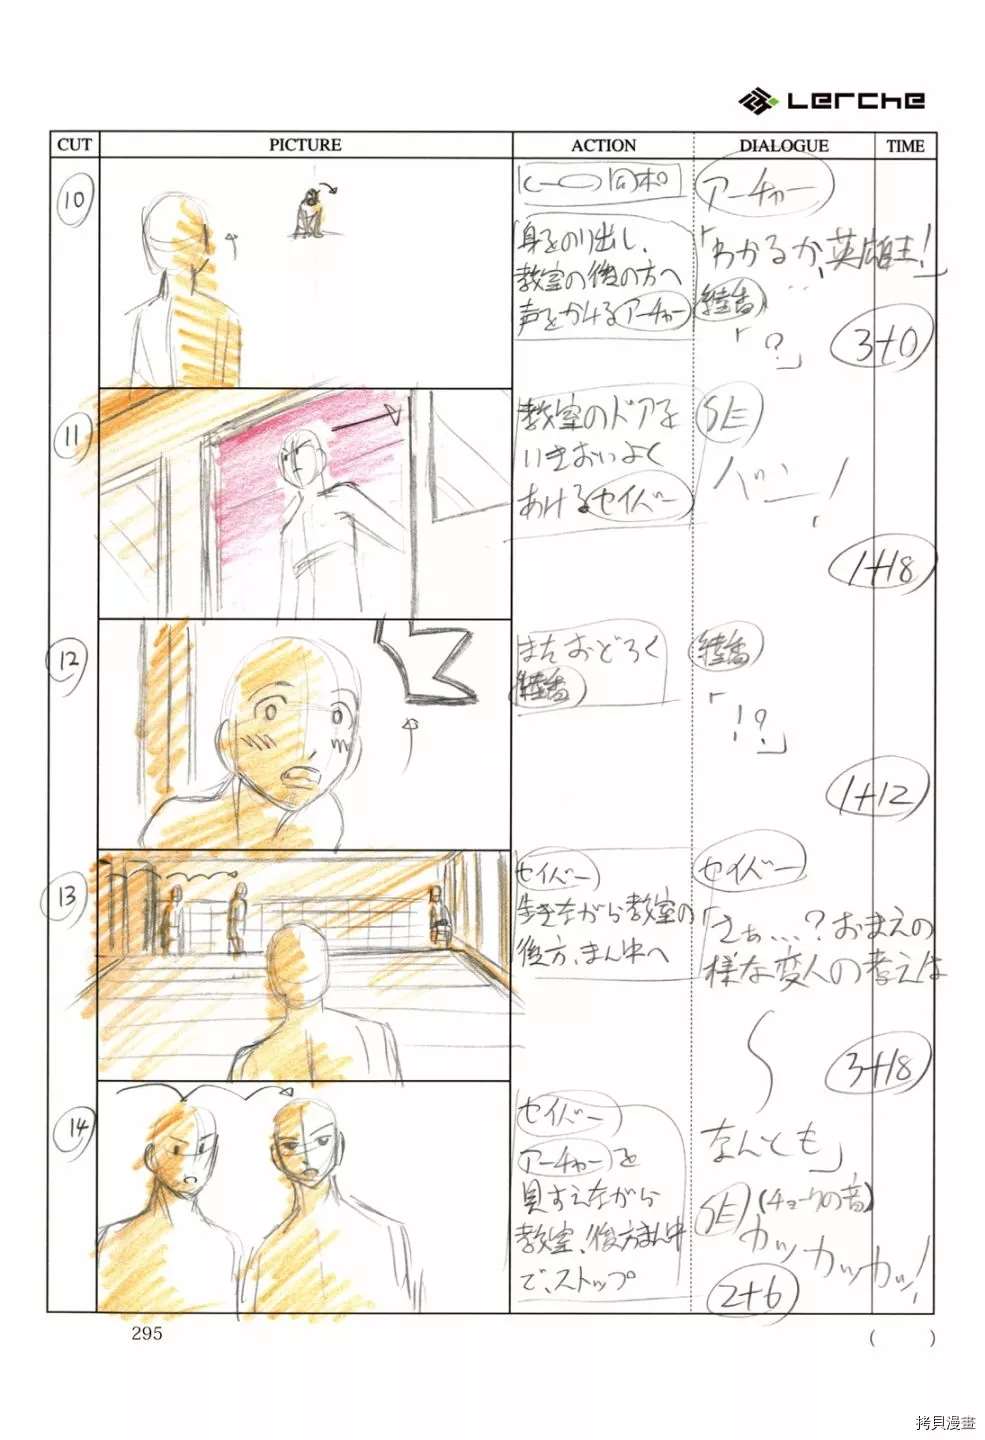 Lerche
CUT PICTURE ACTION DIALOGUE TIME
10
同ポ
アーチャー
身をのり出し、
教室の後の方へ
声をかけるアーチャー
「わかるか、英雄王!」
綾香
「?」
3+0
11
教室のドアを
いきおいよく
あけるセイバー
SE
バン!
1+18
12
またおどろく
綾香
綾香
「!?」
1+12
13
セイバー
歩きながら教室の
後方、まん中へ
セイバー
「さぁ…?おまえの
様な変人の考えは
3+18
14
セイバー
アーチャーを
見すえながら
教室、後方まん中
で、ストップ
なんとも」
SE (チョークの音)
カッカッカッ!
2+6
295
( )
拷貝漫畫